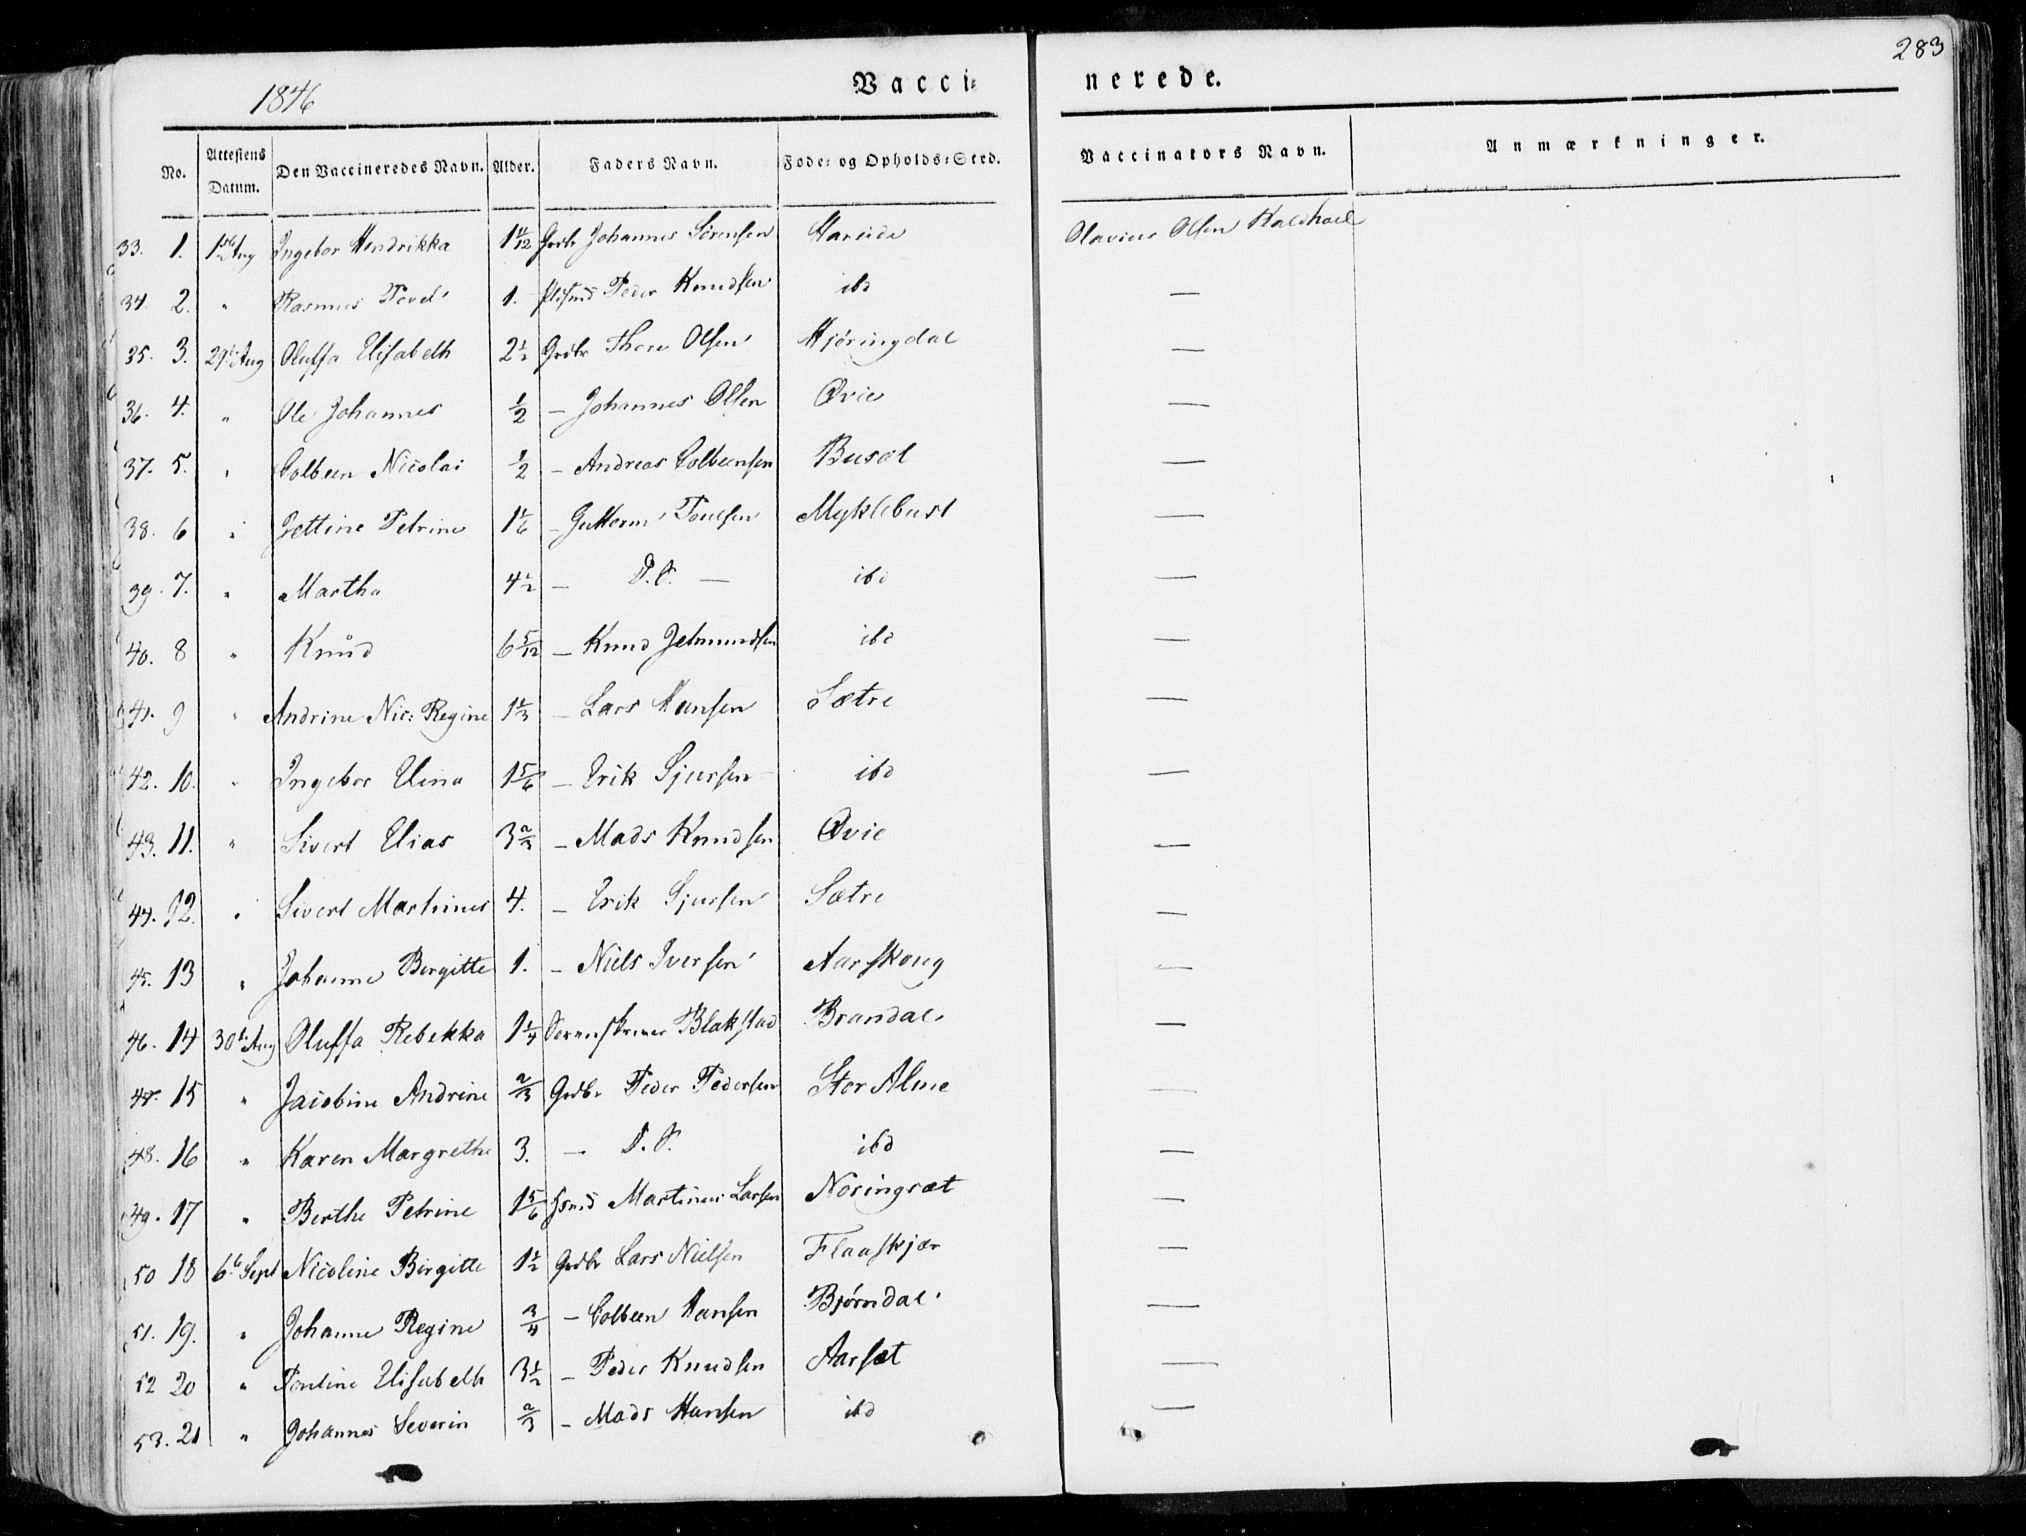 283
1846 Vacci= nerede.
No. Attestens Datum. Den Vaccineredes Navn. Alder. Faders Navn. Føde= og Opholds=Sted. Vaccinators Navn. Anmærkninger.
33. 1. 1ste Aug Ingebor Hendrikka 1 4/12 Grdbr Johannes Sörensen Hareide Olavius Olsen Kaldhoel
34. 2. " Rasmus Peder Knudsen ibd —
35. 3. 29t Aug Oluffa Elisabeth 2 1/2 Grdbr Thore Olsen Hjøringdal —
36. 4. " Ole Johannes 1/2 — Johannes Olsen Øvie —
37. 5. " Colbeen Nicolai 1/2 — Andreas Colbeensen Busæt —
38. 6 " Jettine Petrine 1 1/6 — Guttorm Poulsen Myklebust —
39. 7. " Martha 4 1/2 — D.S. — ibd —
40. 8 " Knud 6 5/12 — Knud Jetmundsen ibd —
41. 9 " Andrine Nic: Regine 1 1/3 — Lars Hansen Sætre —
42. 10. " Ingebor Elina 1 5/6 — Erik Sjursen ibd —
43. 11. " Sivert Elias 3 2/3 — Mads Knudsen Øvie —
44. 12. " Sivert Martinus 4. — Erik Sjursen Sætre —
45. 13 " Johanne Bergitte 1. — Niels Iversen Aarskoug —
46. 14 30t Aug Oluffa Rebekka 1 1/4 Sorenskriver Blakstad Brandal —
47. 15 " Jacobine Andrine 2/3 Grdbr Peder Pedersen Stor Alme —
48. 16 " Karen Margrethe 3. — D.S. ibd —
49. 17 " Berthe Petrine 1 5/6 Martinus Larsen Nöringsæt —
50 18 6t Sept Nicoline Birgitte 1 1/2 Grdbr Lars Nielsen Flaaskjær —
51. 19. " Johanne Regine 3/4 — Colbeen Hansen Bjørndal —
52 20 " Pauline Elisabeth 3 1/2 — Peder Knudsen Aarsæt —
53. 21 " Johannes Severin 2/3 — Mads Hansen ibd —